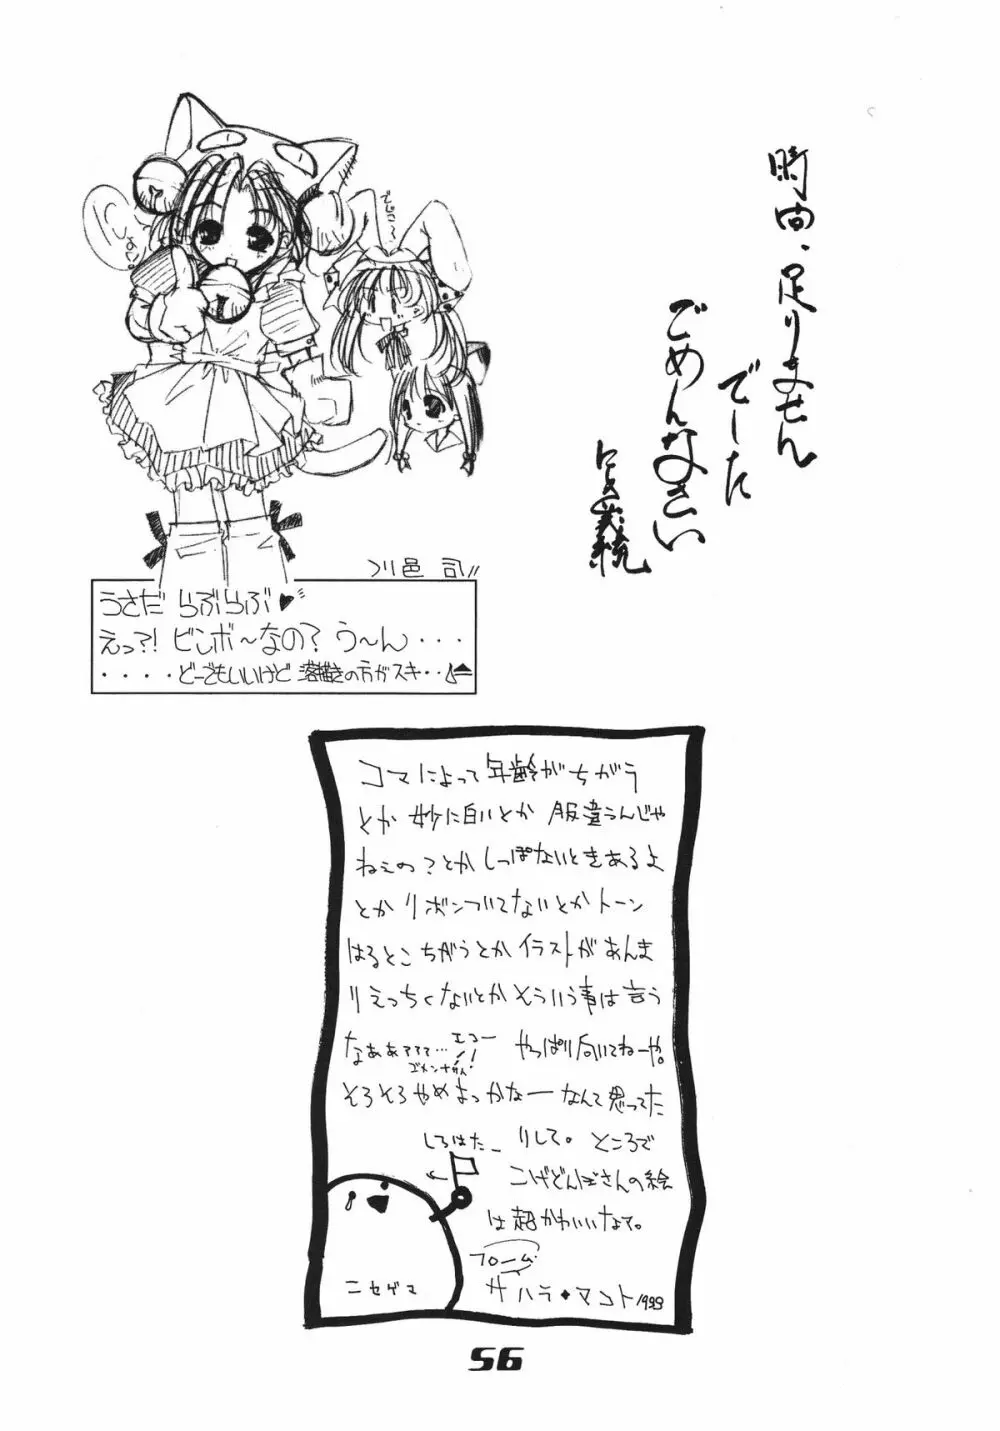 時間、足りません
でーした
ごめんなさい
でじこ〜
川邑 司
うさだ らぶらぶ♥
えっ?! ビンボ〜なの? う〜ん・・・・
・・・・どーでもいいけど 落描きの方がスキ・・
コマによって年齢がちがう
とか 妙に白いとか 服違うんじゃ
ねぇの?とか しっぽないときあるよ
とか リボンついてないとか トーン
はるとこ ちがうとか イラストが あんま
りえっちくないとか そういう事は言う
なぁあァァァ… エコー やっぱり向いてねーや。
ゴメンナサイ!
そろそろやめよっかなー なんて思ってた
りして。ところで
しろはたー
こげどんぼさんの絵
は超かわいいなて。
フローム
サハラ◆マコト 1999
ニセゲマ
56